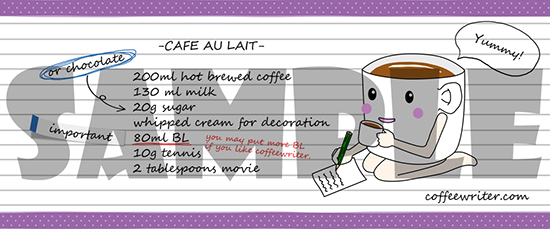 -CAFE AU LAIT-
or chocolate
200ml hot brewed coffee
130 ml milk
20g sugar
whipped cream for decoration
important
80ml BL
you may put more BL
if you like coffeewriter.
10g tennis
2 tablespoons movie
Yummy!
coffeewriter.com
SAMPLE